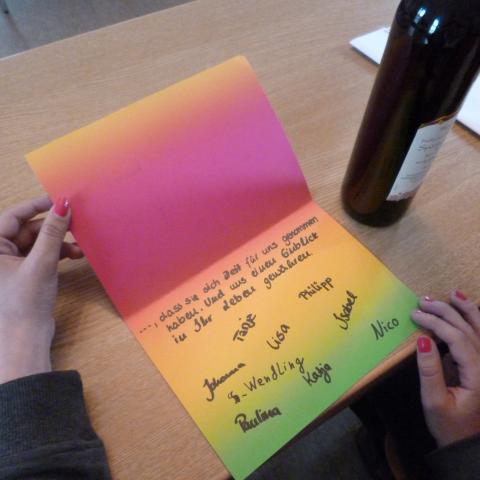 ..., dass sie sich Zeit für uns genommen
haben. Und uns einen Einblick
in Ihr Leben gewähren.
Philipp
Tanja
Lisa
Isabel
Nico
Johanna
S. Wendling
Katja
Paulina